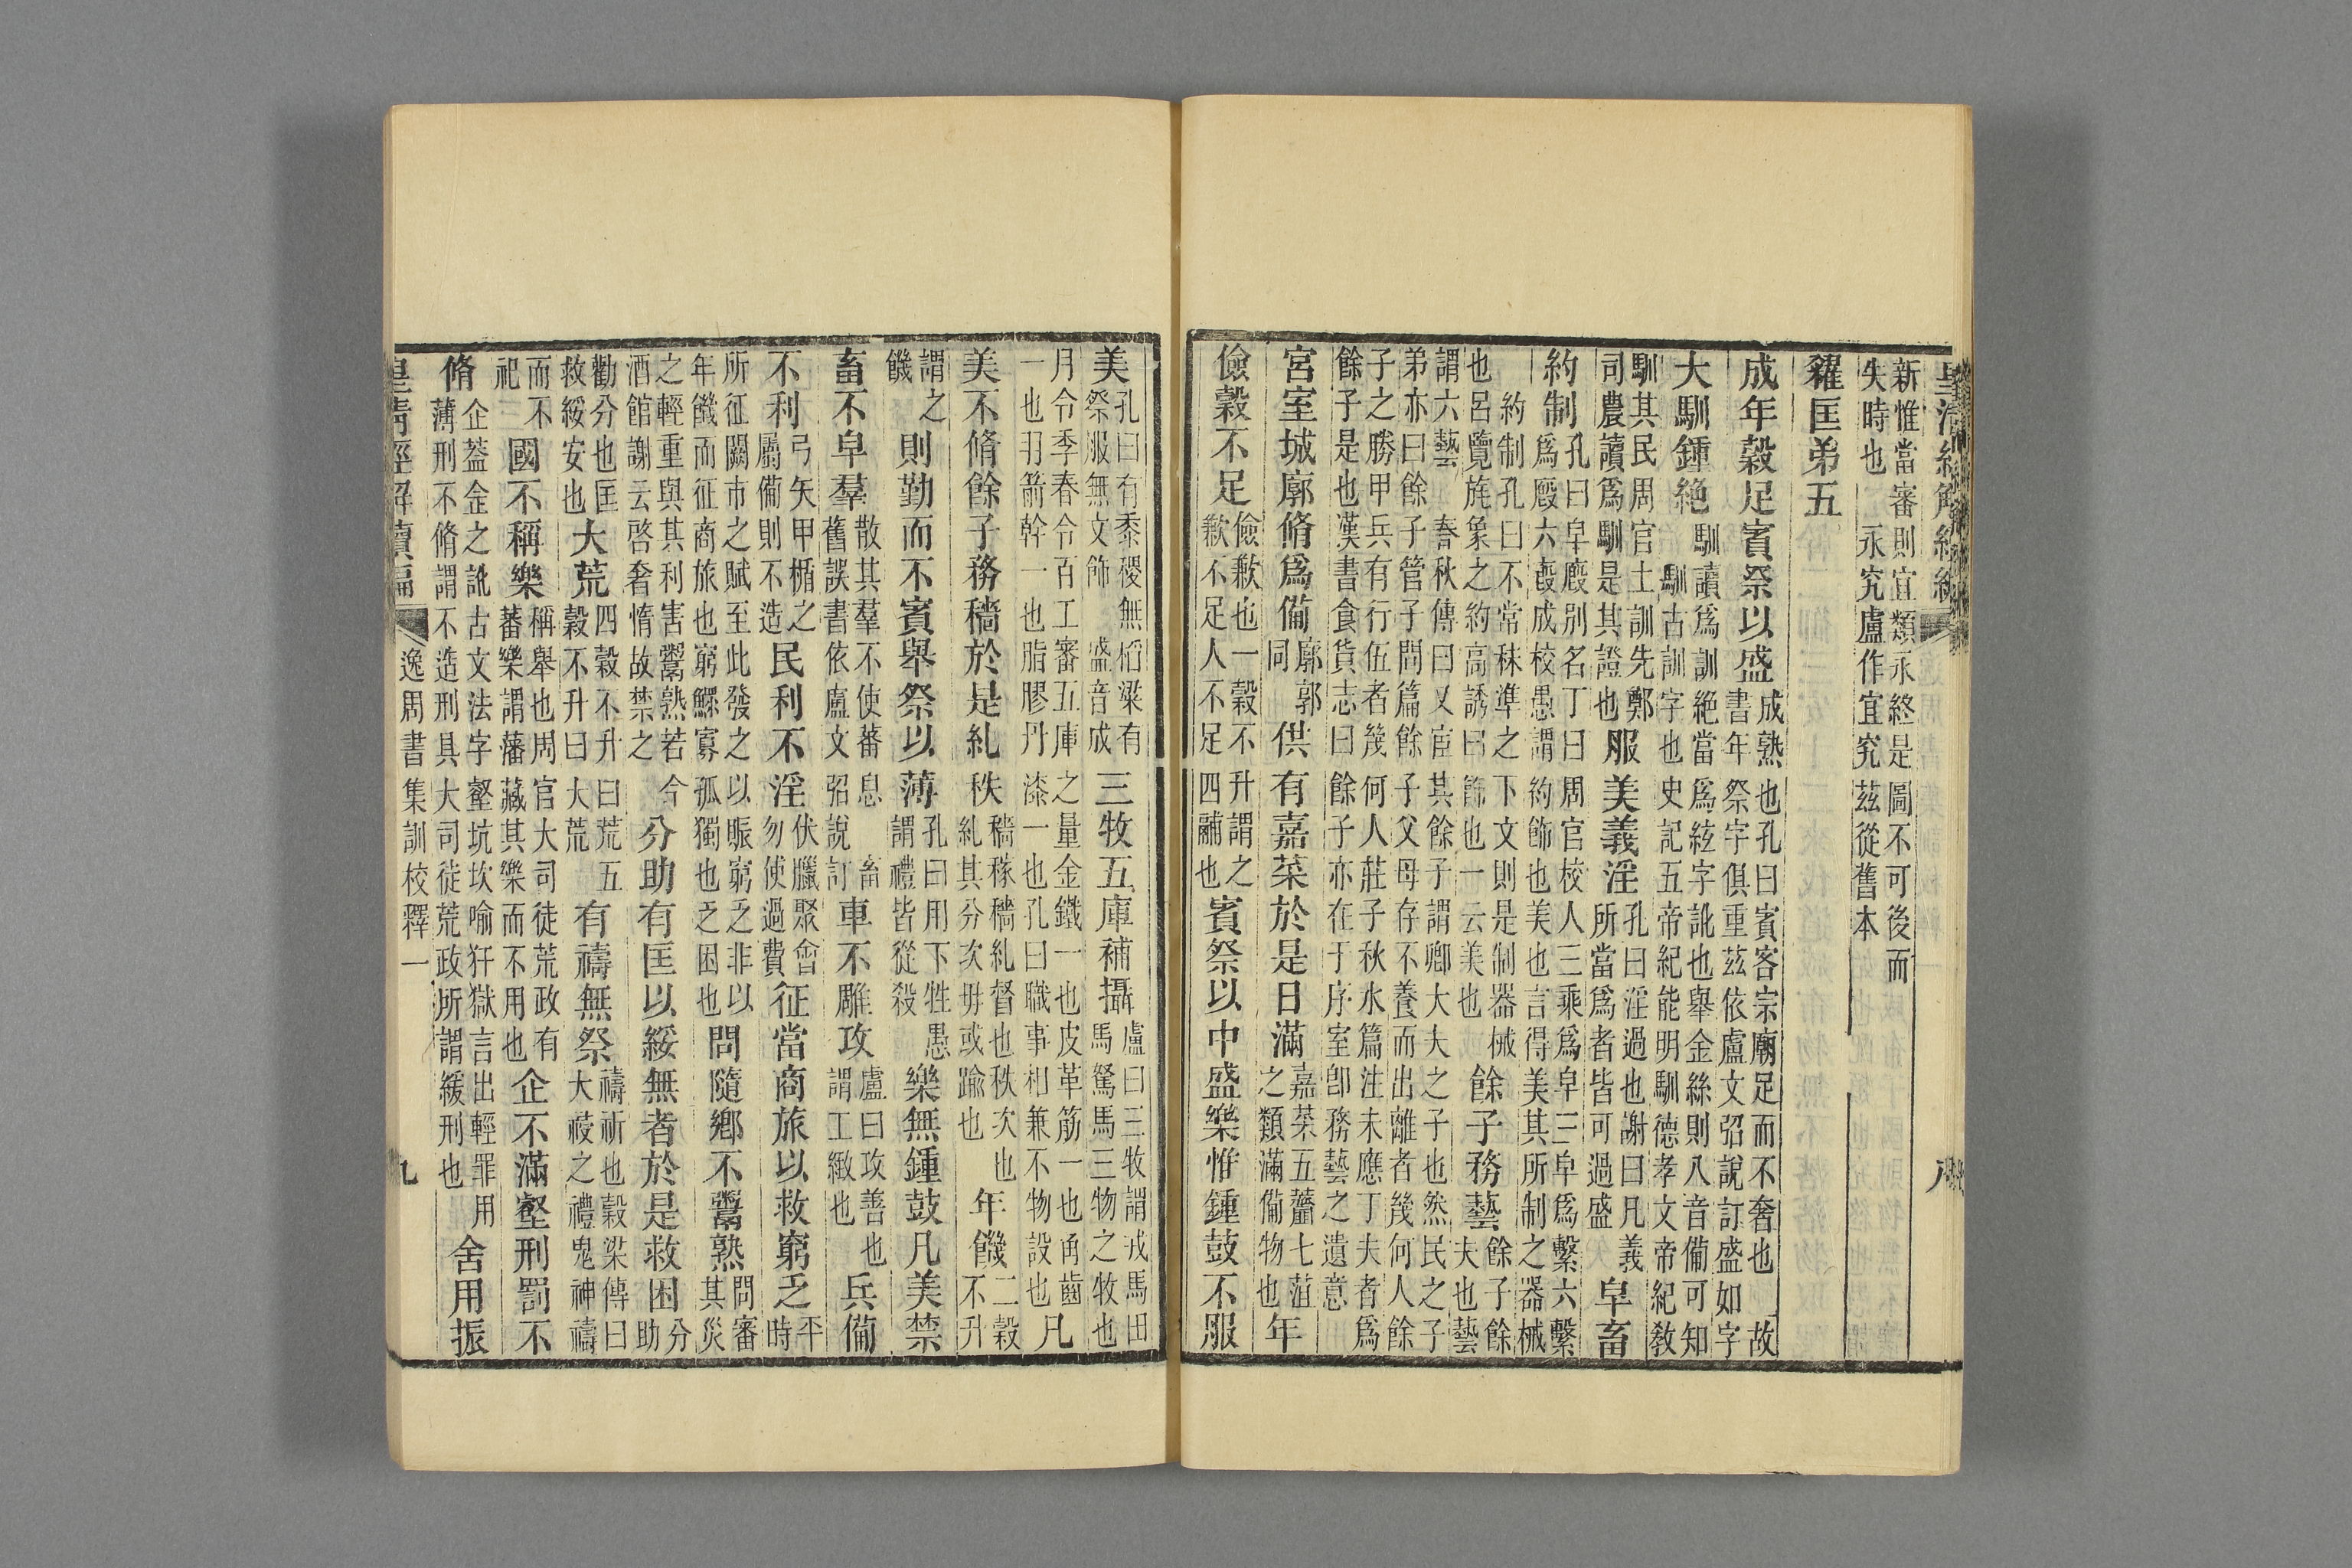 新惟當審則宜類永終是圖不可後而
失時也 永究盧作宜究茲從舊本
糴匡弟五
成年穀足賓祭以盛成熟也孔曰賓客宗廟足而不奢也 故
書年祭字俱重茲依盧文弨說訂盛如字
大馴鍾絶 馴讀爲訓絶當爲絃字訛也舉金絲則八音備可知
馴古訓字也史記五帝紀能明馴德孝文帝紀敎
馴其民周官土訓先鄭
司農讀爲馴是其證也服美義淫孔曰淫過也謝曰凡義
所當爲者皆可過盛皁畜
約制孔曰皁廄别名丁曰周官校人三乘爲皁三皁爲繫六繫
爲廄六廄成校愚謂約飾也美也言得美其所制之器械
約制孔曰不常秣準之下文則是制器械
也呂覽旄象之約高誘曰飾也一云美也餘子務藝餘子餘
夫也藝
謂六藝 春秋傳曰又宦其餘子謂卿大夫之子也然民之子
弟亦曰餘子管子問篇餘子父母存不養而出離者幾何人餘
子之勝甲兵有行伍者幾何人莊子秋水篇注未應丁夫者爲
餘子是也漢書食貨志曰餘子亦在于序室卽務藝之遺意
宮室城廓脩爲備廓郭
同供有嘉菜於是日滿嘉菜五虀七菹
之類滿備物也年
儉穀不足儉歉也一穀不升謂之
歉不足人不足四鬴也賓祭以中盛樂惟鍾鼓不服
美孔曰有黍稷無稻粱有
祭服無文飾 盛音成三牧五庫補攝盧曰三牧謂戎馬田
馬駑馬三物之牧也
月令季春令百工審五庫之量金鐵一也皮革筋一也角齒
一也羽箭幹一也脂膠丹漆一也孔曰職事相兼不物設也凡
美不脩餘子務穡於是糺秩穡稼穡糺督也秩次也
糺其分次毋或踰也年饑二穀
不升
謂之
饑則勤而不賓舉祭以薄孔曰用下牲愚
謂禮皆從殺樂無鍾鼓凡美禁
畜不皁羣散其羣不使蕃息 畜
舊誤書依盧文弨說訂車不雕攻盧曰攻善也
謂工緻也兵備
不利弓矢甲楯之
屬備則不造民利不淫伏臘聚會
勿使過費征當商旅以救窮乏平
時
所征關市之賦至此發之以賑窮乏非以
年饑而征商旅也窮鰥寡孤獨也乏困也問隨鄉不鬻熟問審
其災
之輕重與其利害鬻熟若今
酒館謝云啓奢惰故禁之分助有匡以綏無者於是救困分
助
勸分也匡
救綏安也大荒四穀不升曰荒五
穀不升曰大荒有禱無祭禱祈也穀梁傳曰
大祲之禮鬼神禱
而不
祀國不稱樂稱舉也周官大司徒荒政有
蕃樂謂藩藏其樂而不用也企不滿壑刑罰不
脩企蓋金之訛古文法字壑坑坎喻犴獄言出輕罪用
薄刑不脩謂不造刑具大司徒荒政所謂緩刑也舍用振
皇淸經解續編 逸周書集訓校釋一 九